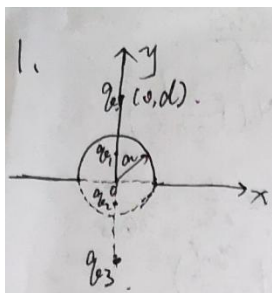 1.
y
q (0,d).
q1 a
0
q2
x
q3